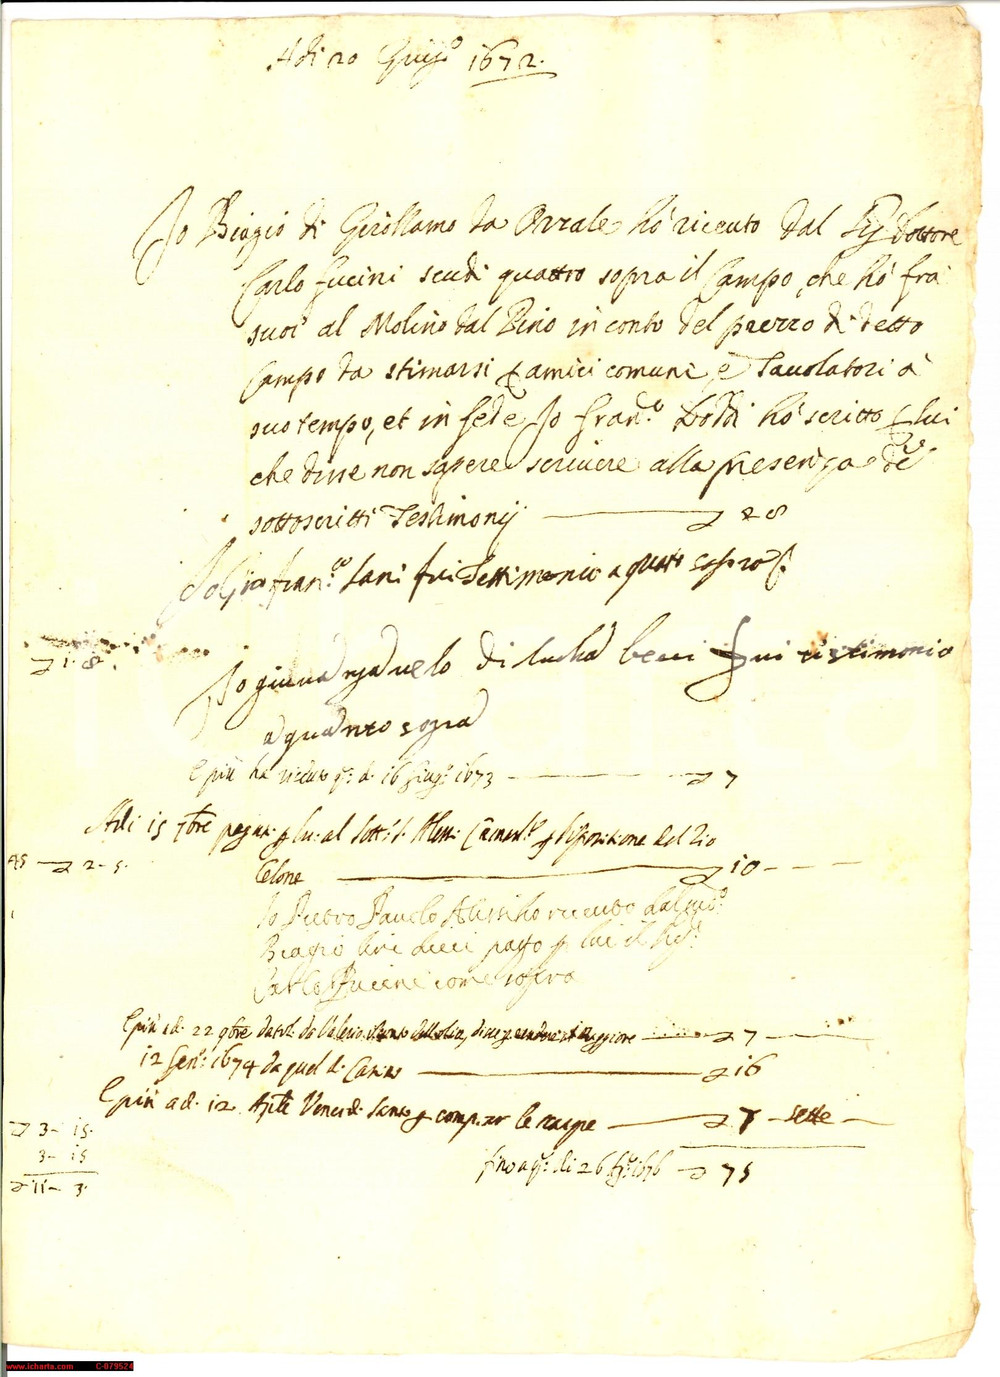 Adi 20 Giug.o 1672.
Io Biagio di Girollamo da Orzale ho riceuto dal Sig Dottore
Carlo Fucini scudi quattro sopra il Campo, che hò frà
suoi al Molino dal Pino in conto del prezzo di detto
Campo da stimarsi p amici comuni, e Tauolatori à
suo tempo, et in fede Io Fran.o Doddi hò scritto p lui
che disse non sapere scriuere alla presenza de
sottoscritti Testimonij 28
Io Fran.co Sani fui Testimonio a quato sopra
Io di lucha becci fui testimonio
a quanto sopra
1. 8.
E più ha riceuto q. d. 16 Giug. 1673 7
Adi 15 7bre al Sott. Aless. p del Rio
Celone 10
45 2-5.
Io Pietro Pauolo Alissi ho riceuto dal sud.o
Biagio lire dieci p lui il Sig.
Carlo Fucini come sopra
E più ad. 22 9bre da 7
12 Gen. 1674 da quel d. 16
E più ad. 12 Aple Venerdi Santo p comprar le 7 sette
3- 15.
3- 15
11- 3.
fino a q. di 26 1676 75
www.icharta.com C-079524